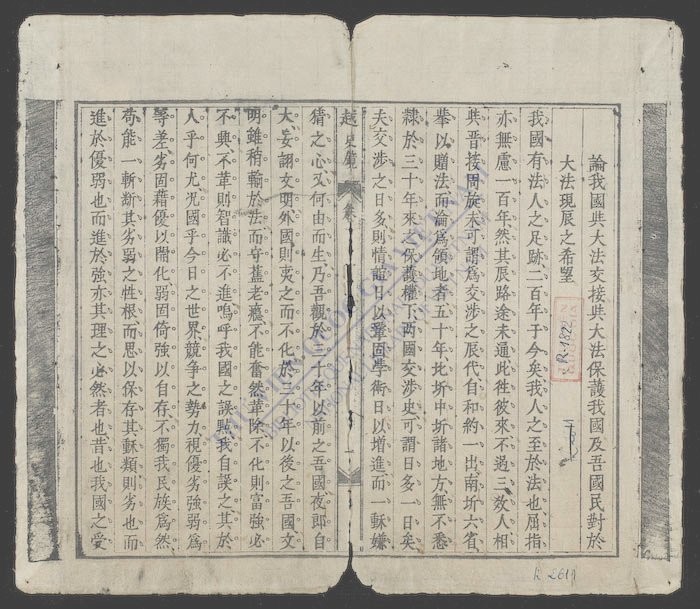 論我國與大法交接與大法保護我國及吾國民對於
大法現辰之希望
我國有法人之足跡二百年于今矣我人之至於法也屈指
亦無慮一百年然其辰路途未通此徃彼來不過三数人相
與晋接周旋未可謂為交涉之辰代自和約一出南圻六省
舉以贈法而論為領地者五十年北圻中圻諸地方無不悉
隸於三十年來之保護權下两國交涉史可謂日多一日矣
夫交涉之日多則情誼日以鞏固學術日以增進而一種嫌
越史
猜之心又何由而生乃吾觀於三十年以前之吾國夜郎自
大妄詡文明外國則夷之而不化於三十年以後之吾國文
明雖稍輸於法而守舊老癮不能奮然革除不化則富強必
不興不革則智識必不進嗚呼我國之誤點我自誤之其於
人乎何尤況國乎今日之世界競争之勢力視優劣強弱為
等差劣固藉優以開化弱固倚強以自存不獨我民族為然
苟能一斬断其劣弱之性根而思以保存其穌類則劣也而
進於優弱也而進於強亦其理之必然者也昔也我國之受
R.1822
R.2619